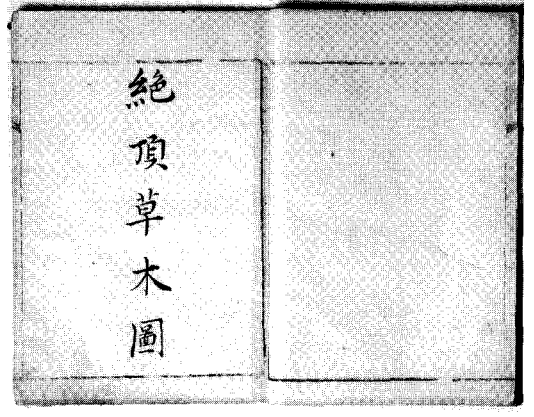 絶頂草木圖